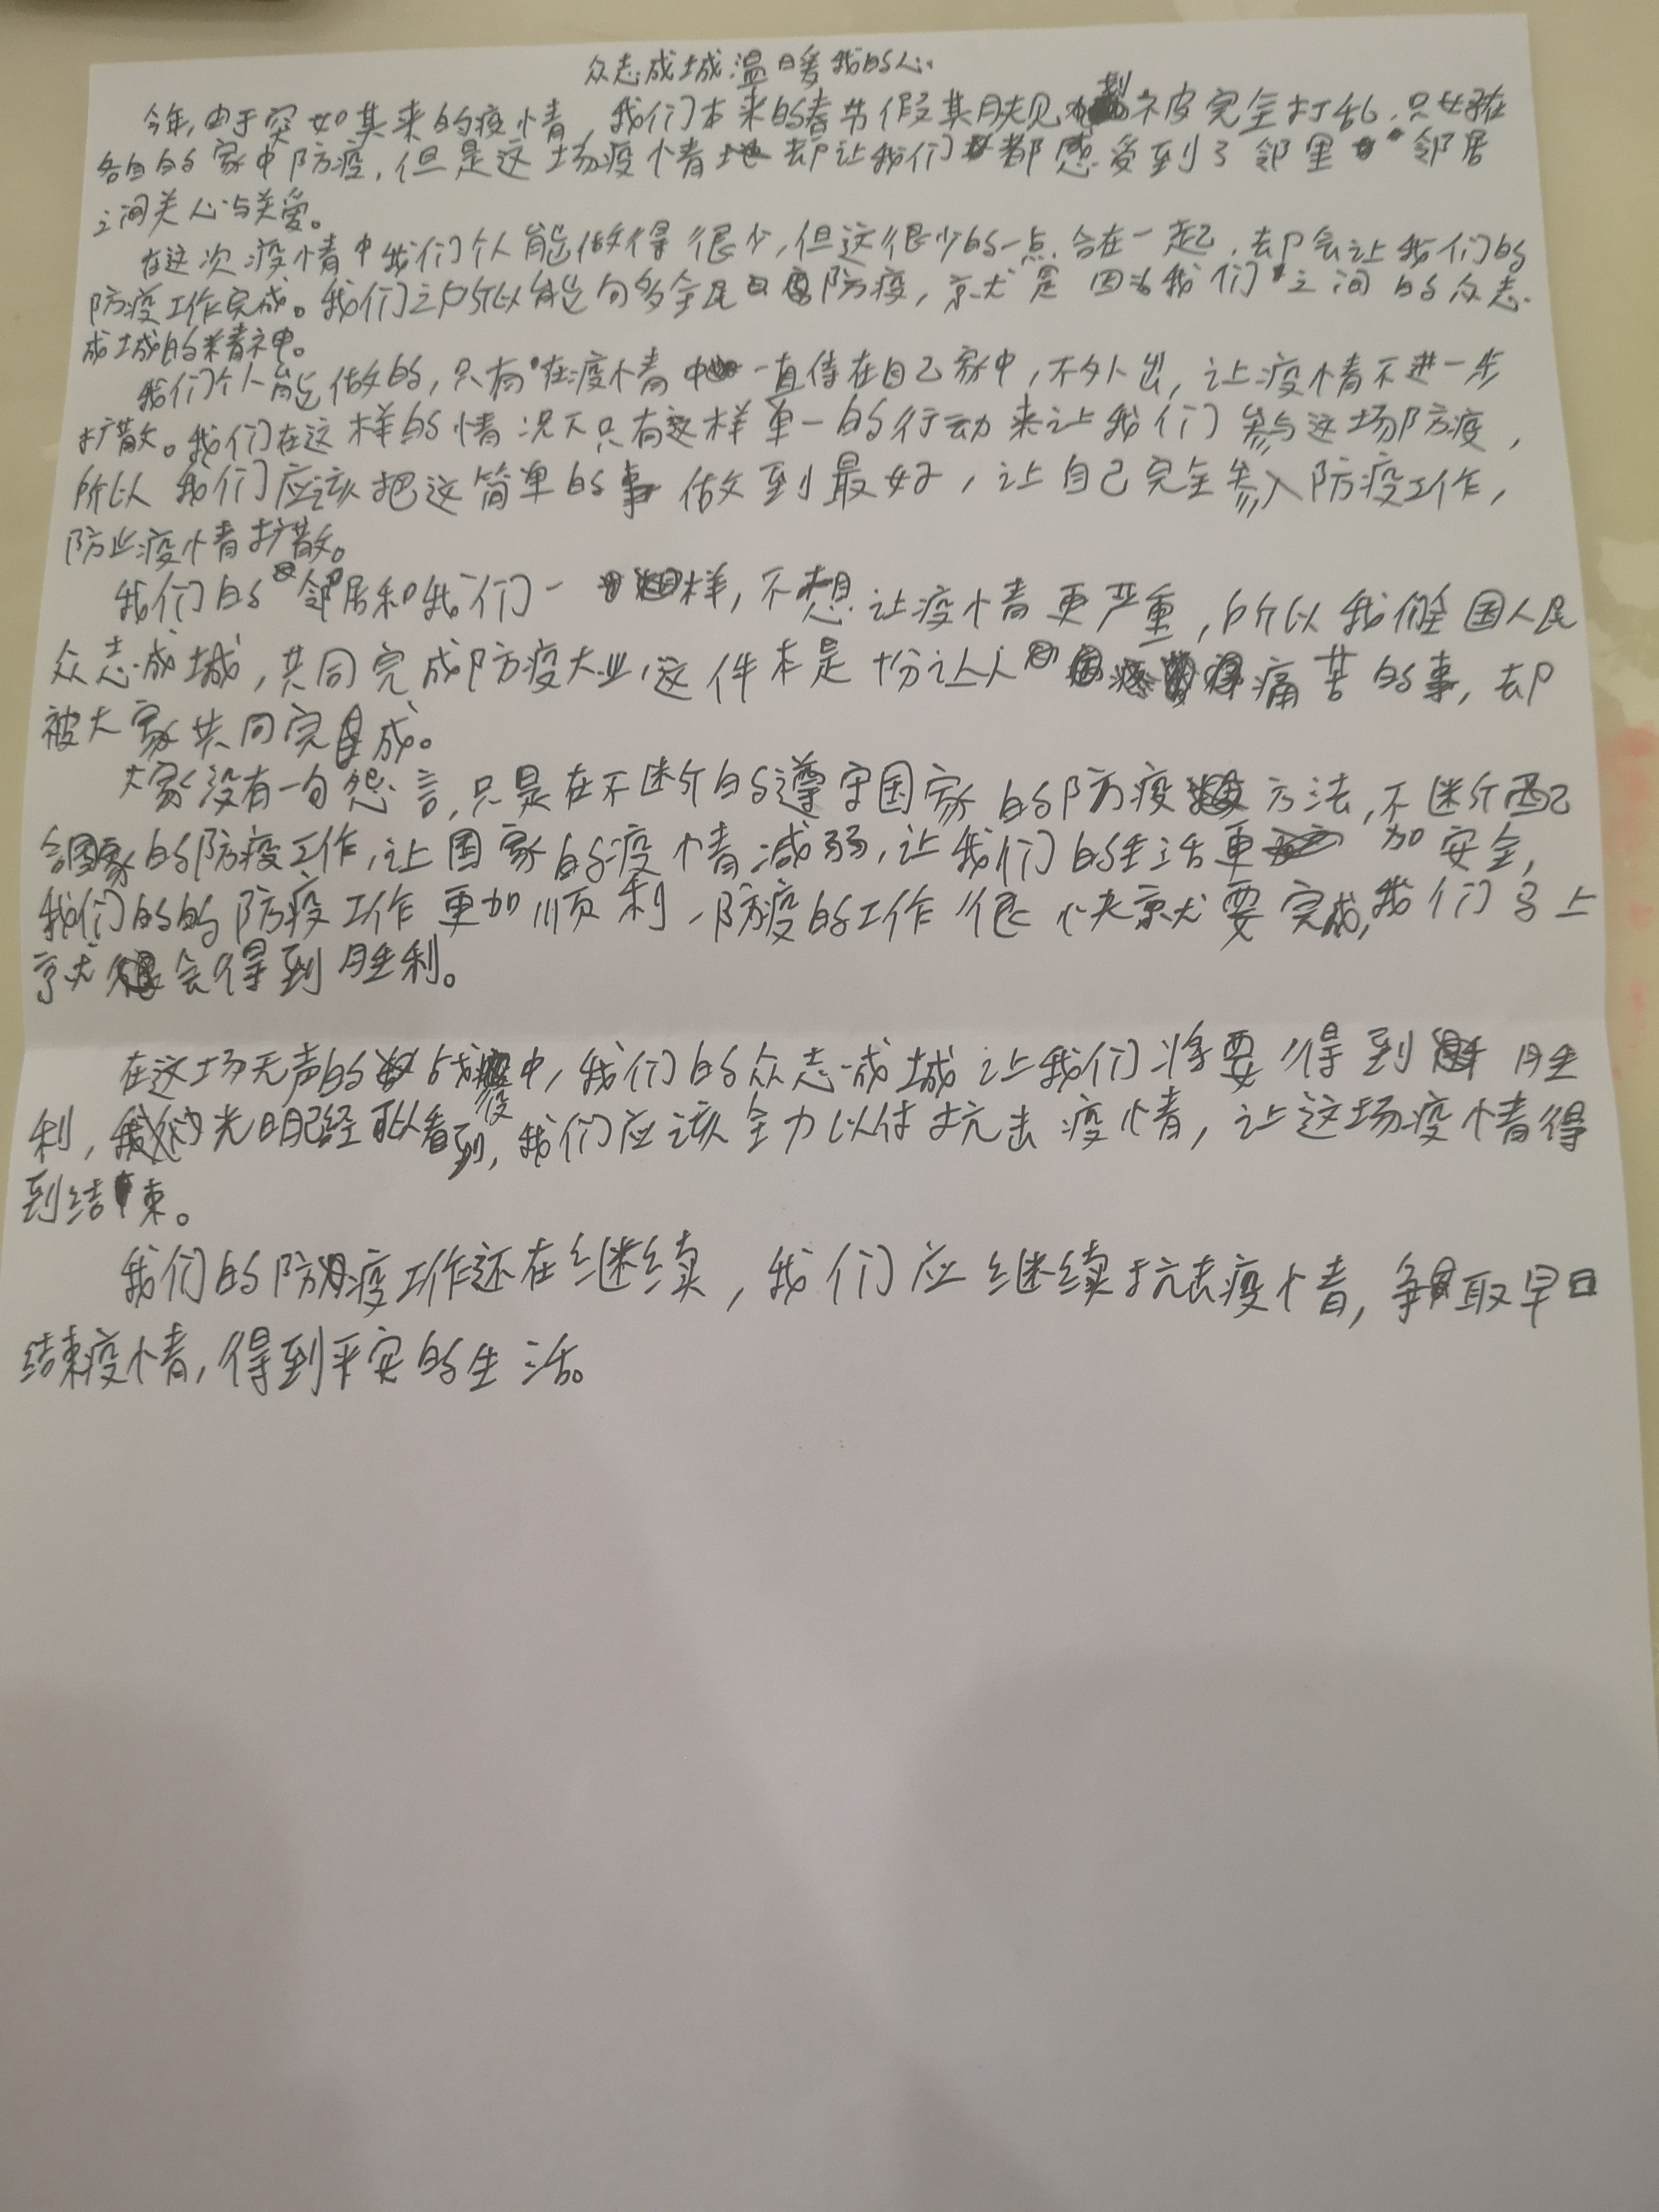 众志成城温暖我的心
今年,由于突如其来的疫情,我们本来的春节假期规划被完全打乱,只好在
各自的家中防疫,但是这场疫情却让我们都感受到了邻里邻居
之间关心与关爱。
在这次疫情中我们个人能做得很少,但这很少的一点合在一起,却会让我们的
防疫工作完成。我们之所以能够全民防疫,就是因为我们之间的众志
成城的精神。
我们个人能做的,只有在疫情中一直待在自己家中,不外出,让疫情不进一步
扩散。我们在这样的情况下只有这样单一的行动来让我们参与这场防疫,
所以我们应该把这简单的事做到最好,让自己完全参入防疫工作,
防止疫情扩散。
我们的邻居和我们一样,不想让疫情更严重,所以我们全国人民
众志成城,共同完成防疫大业,这件本是十份让人痛苦的事,却
被大家共同完成。
大家没有一句怨言,只是在不断的遵守国家的防疫方法,不断配
合国家的防疫工作,让国家的疫情减弱,让我们的生活更加安全,
我们的的防疫工作更加顺利,防疫的工作很快就要完成,我们马上
就会得到胜利。
在这场无声的战役中,我们的众志成城让我们将要得到胜
利,光明已经可以看到,我们应该全力以付抗击疫情,让这场疫情得
到结束。
我们的防疫工作还在继续,我们应继续抗击疫情,争取早日
结束疫情,得到平安的生活。